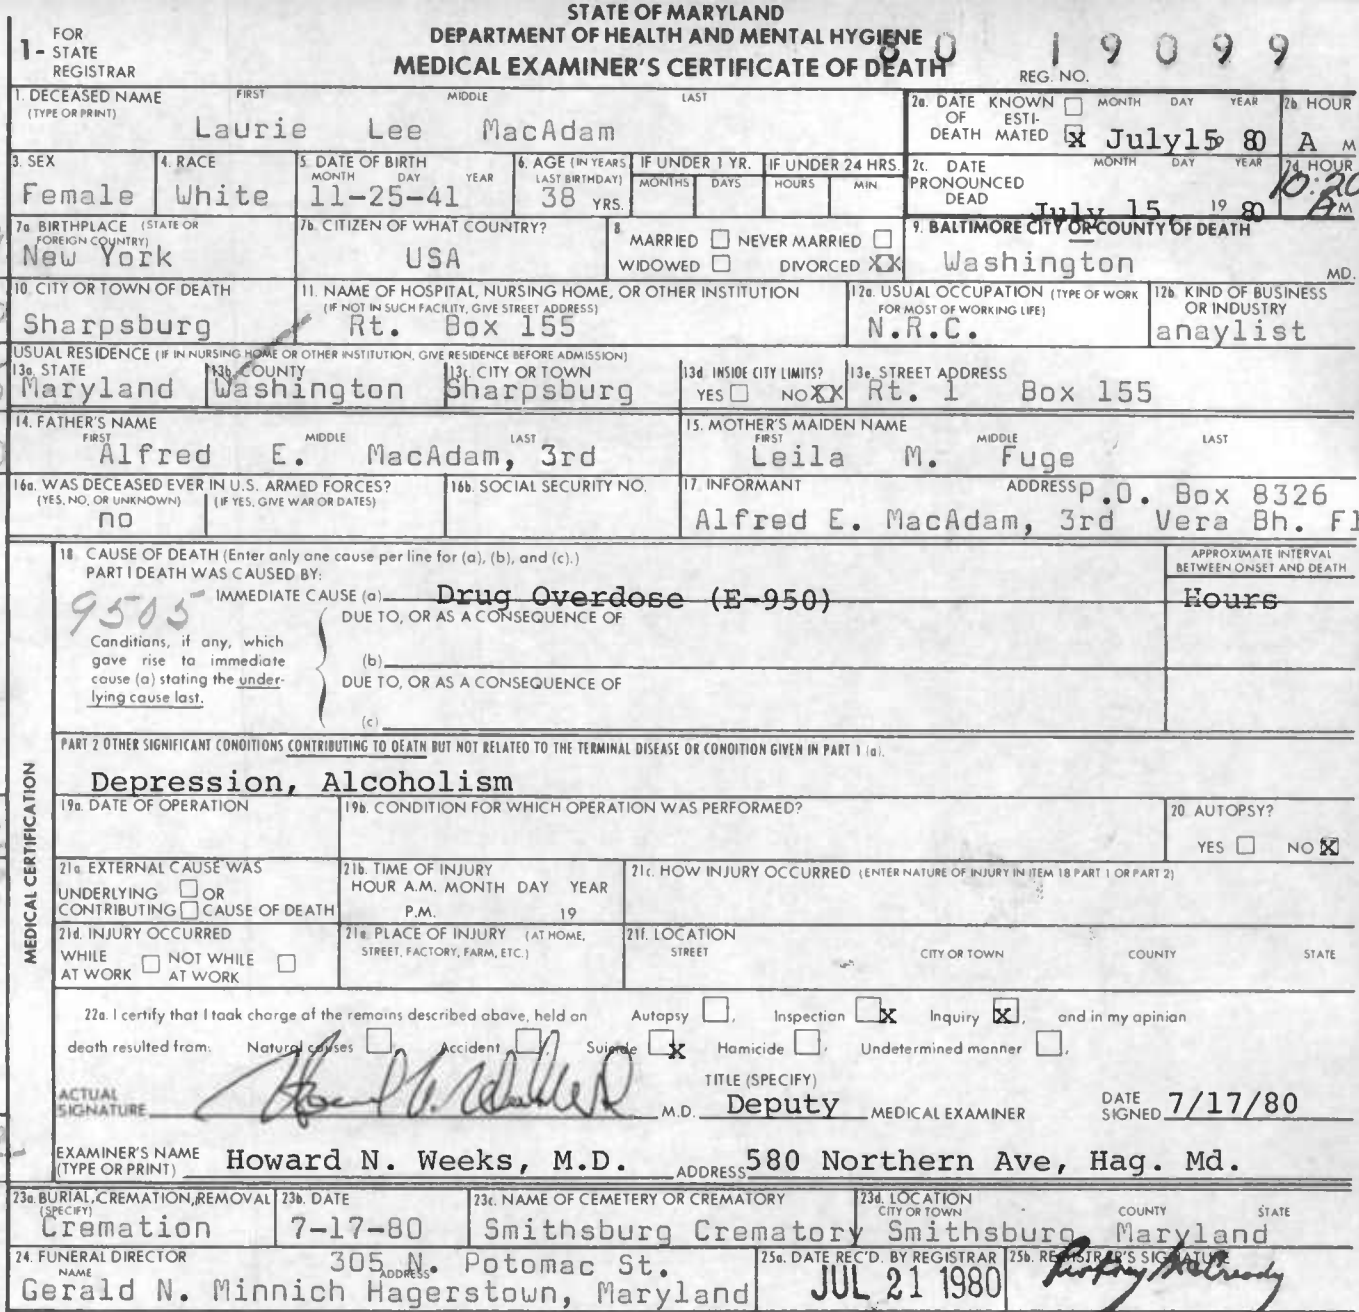 STATE OF MARYLAND
DEPARTMENT OF HEALTH AND MENTAL HYGIENE
MEDICAL EXAMINER'S CERTIFICATE OF DEATH
1- FOR STATE REGISTRAR
80 19099
REG. NO.
1. DECEASED NAME (TYPE OR PRINT) FIRST MIDDLE LAST
Laurie Lee MacAdam
2a. DATE OF DEATH KNOWN ESTIMATED X MONTH DAY YEAR July 15, 80
2b. HOUR A M
3. SEX Female
4. RACE White
5. DATE OF BIRTH MONTH DAY YEAR 11-25-41
6. AGE (IN YEARS LAST BIRTHDAY) 38 YRS.
IF UNDER 1 YR. MONTHS DAYS
IF UNDER 24 HRS. HOURS MIN.
2c. DATE PRONOUNCED DEAD MONTH DAY YEAR July 15, 19 80
2d. HOUR 10:20 A M
7a. BIRTHPLACE (STATE OR FOREIGN COUNTRY) New York
7b. CITIZEN OF WHAT COUNTRY? USA
8. MARRIED NEVER MARRIED WIDOWED DIVORCED XX
9. BALTIMORE CITY OR COUNTY OF DEATH Washington MD.
10. CITY OR TOWN OF DEATH Sharpsburg
11. NAME OF HOSPITAL, NURSING HOME, OR OTHER INSTITUTION (IF NOT IN SUCH FACILITY, GIVE STREET ADDRESS) Rt. Box 155
12a. USUAL OCCUPATION (TYPE OF WORK FOR MOST OF WORKING LIFE) N.R.C.
12b. KIND OF BUSINESS OR INDUSTRY anaylist
USUAL RESIDENCE (IF IN NURSING HOME OR OTHER INSTITUTION, GIVE RESIDENCE BEFORE ADMISSION)
13a. STATE Maryland
13b. COUNTY Washington
13c. CITY OR TOWN Sharpsburg
13d. INSIDE CITY LIMITS? YES NO XX
13e. STREET ADDRESS Rt. 1 Box 155
14. FATHER'S NAME FIRST MIDDLE LAST
Alfred E. MacAdam, 3rd
15. MOTHER'S MAIDEN NAME FIRST MIDDLE LAST
Leila M. Fuge
16a. WAS DECEASED EVER IN U.S. ARMED FORCES? (YES, NO, OR UNKNOWN) (IF YES, GIVE WAR OR DATES) no
16b. SOCIAL SECURITY NO.
17. INFORMANT ADDRESS P.O. Box 8326
Alfred E. MacAdam, 3rd Vera Bh. Fl
MEDICAL CERTIFICATION
18. CAUSE OF DEATH (Enter only one cause per line for (a), (b), and (c).)
PART I DEATH WAS CAUSED BY:
APPROXIMATE INTERVAL BETWEEN ONSET AND DEATH
9505
IMMEDIATE CAUSE (a) Drug Overdose (E-950) Hours
DUE TO, OR AS A CONSEQUENCE OF
Conditions, if any, which gave rise to immediate cause (a) stating the underlying cause last.
(b)
DUE TO, OR AS A CONSEQUENCE OF
(c)
PART 2 OTHER SIGNIFICANT CONDITIONS CONTRIBUTING TO DEATH BUT NOT RELATED TO THE TERMINAL DISEASE OR CONDITION GIVEN IN PART 1 (a).
Depression, Alcoholism
19a. DATE OF OPERATION
19b. CONDITION FOR WHICH OPERATION WAS PERFORMED?
20. AUTOPSY? YES NO X
21a. EXTERNAL CAUSE WAS UNDERLYING OR CONTRIBUTING CAUSE OF DEATH
21b. TIME OF INJURY HOUR A.M. MONTH DAY YEAR P.M. 19
21c. HOW INJURY OCCURRED (ENTER NATURE OF INJURY IN ITEM 18 PART 1 OR PART 2)
21d. INJURY OCCURRED WHILE AT WORK NOT WHILE AT WORK
21e. PLACE OF INJURY (AT HOME, STREET, FACTORY, FARM, ETC.)
21f. LOCATION STREET CITY OR TOWN COUNTY STATE
22a. I certify that I took charge of the remains described above, held an Autopsy, Inspection X Inquiry X, and in my opinion
death resulted from: Natural causes, Accident, Suicide X Homicide, Undetermined manner,
ACTUAL SIGNATURE M.D.
TITLE (SPECIFY) Deputy MEDICAL EXAMINER
DATE SIGNED 7/17/80
EXAMINER'S NAME (TYPE OR PRINT) Howard N. Weeks, M.D. ADDRESS 580 Northern Ave, Hag. Md.
23a. BURIAL, CREMATION, REMOVAL (SPECIFY) Cremation
23b. DATE 7-17-80
23c. NAME OF CEMETERY OR CREMATORY Smithsburg Crematory
23d. LOCATION CITY OR TOWN COUNTY STATE Smithsburg Maryland
24. FUNERAL DIRECTOR NAME ADDRESS 305 N. Potomac St.
Gerald N. Minnich Hagerstown, Maryland
25a. DATE REC'D. BY REGISTRAR JUL 21 1980
25b. REGISTRAR'S SIGNATURE